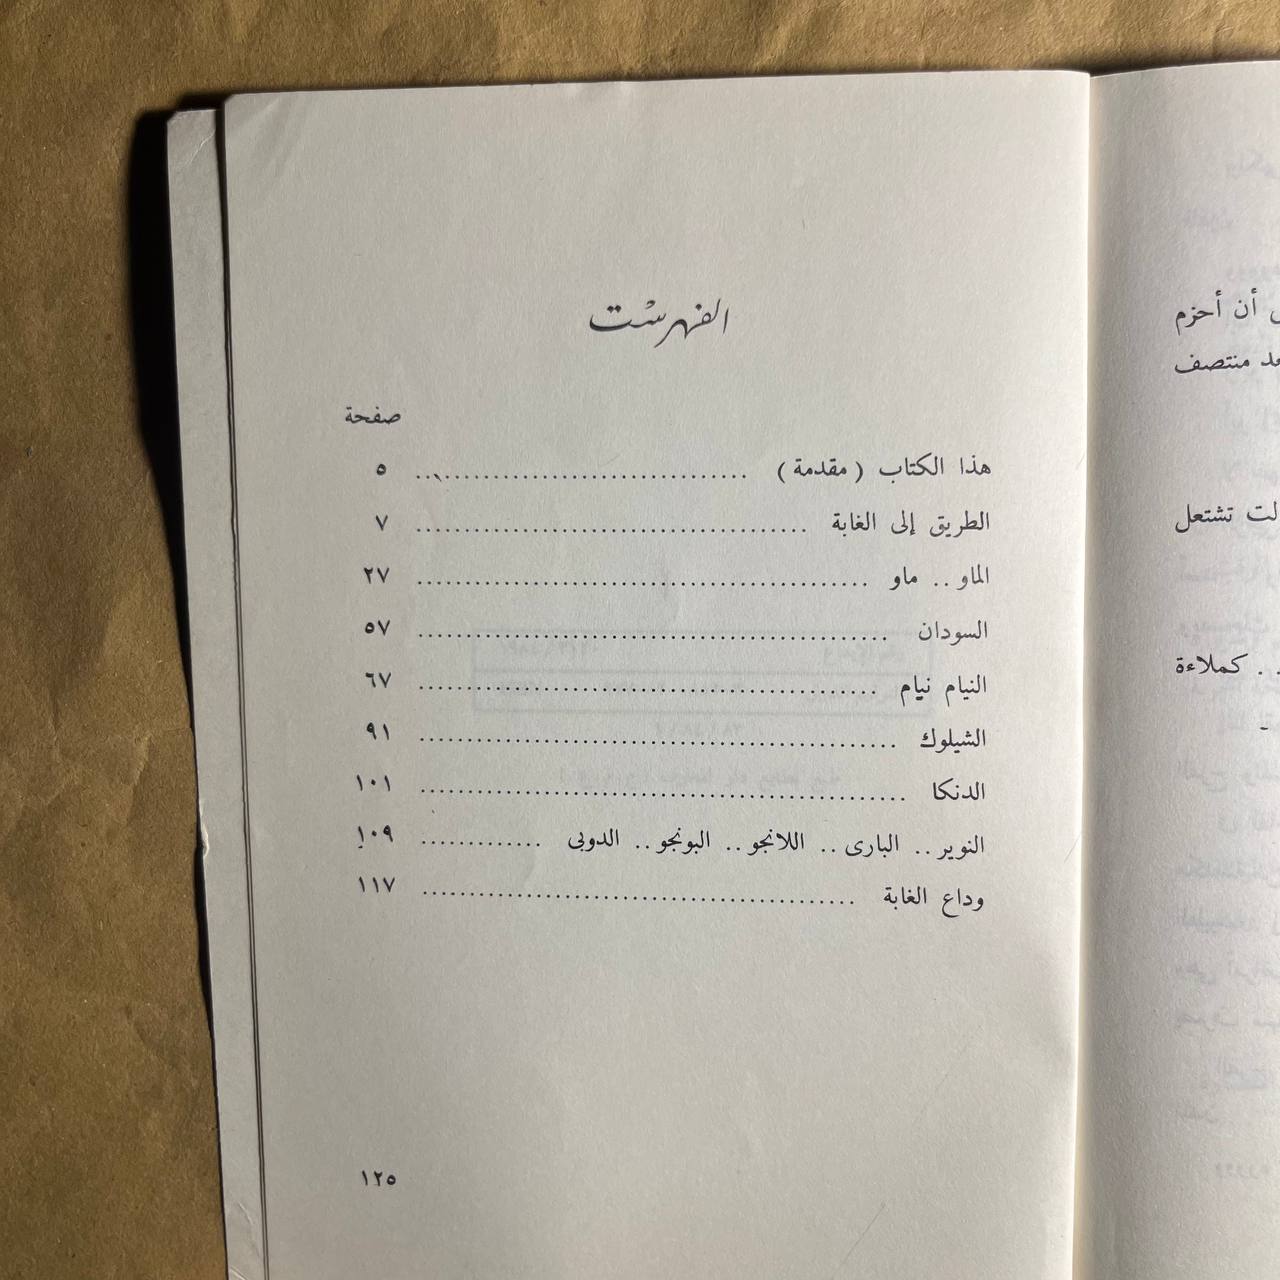 أن أحزم
منتصف
تشتعل
. . كملاءة
الفهرست
صفحة
هذا الكتاب ( مقدمة ) .............................. ٥
الطريق إلى الغابة .................................. ٧
الماو .. ماو ....................................... ٢٧
السودان .......................................... ٥٧
النيام نيام ........................................ ٦٧
الشيلوك .......................................... ٩١
الدنكا ........................................... ١٠١
النوير .. البارى .. اللانجو .. البونجو .. الدوبى ............. ١٠٩
وداع الغابة ...................................... ١١٧
١٢٥